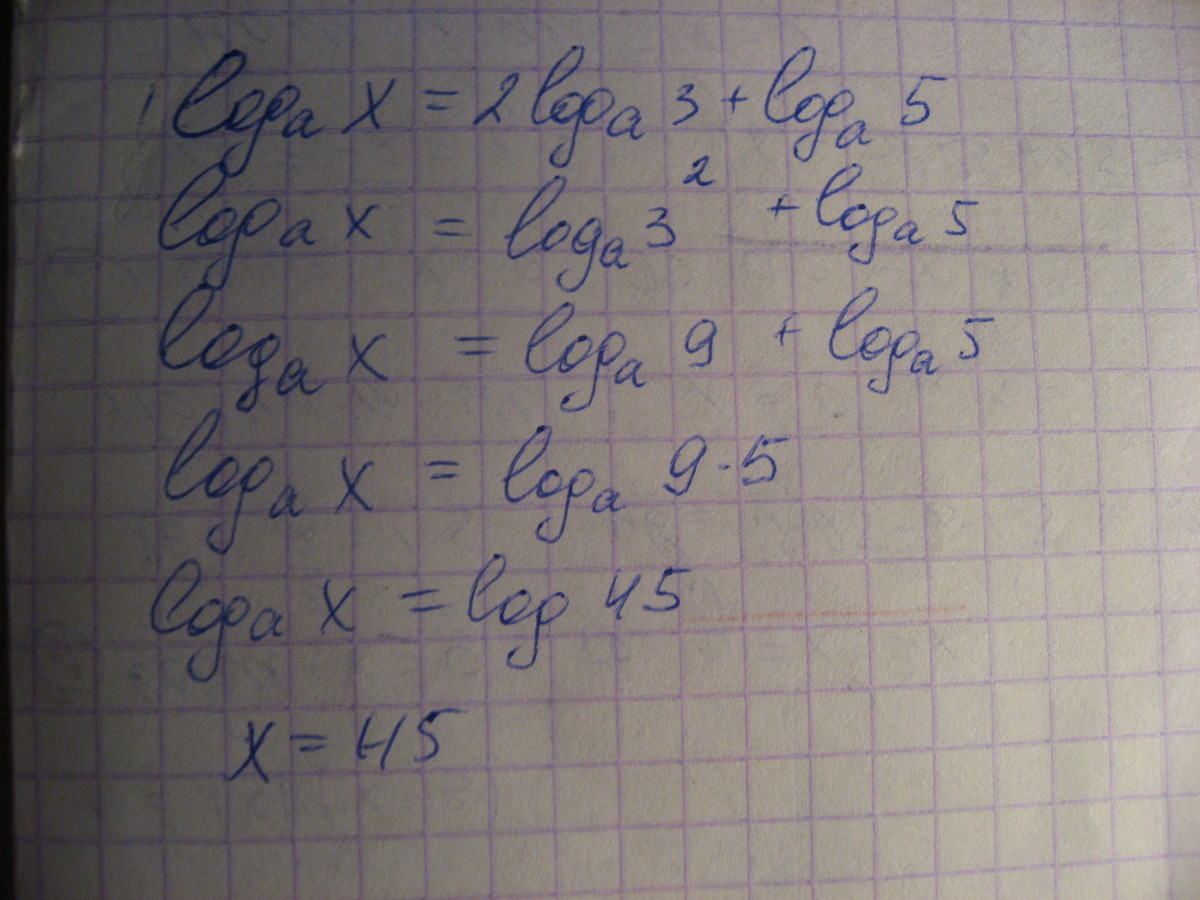 logₐ x = 2 logₐ 3 + logₐ 5
logₐ x = logₐ 3² + logₐ 5
logₐ x = logₐ 9 + logₐ 5
logₐ x = logₐ 9 · 5
logₐ x = log 45
x = 45